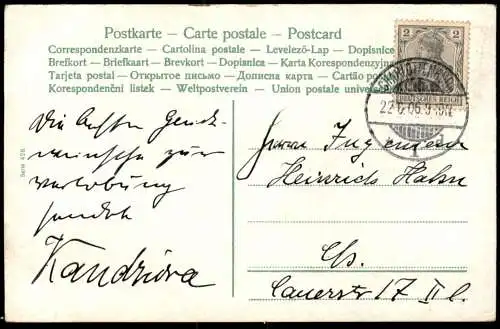 Postkarte - Carte postale - Postcard
Correspondenzkarte — Cartolina postale — Levelező-Lap — Dopisnice
Brefkort — Briefkaart — Brevkort — Dopisnica — Karta Korespondenzyjna
Tarjeta postal — Открытое письмо — Дописна карта — Cartão postal
Korespondenční lístek — Weltpostverein — Union postale universelle
2 2
DEUTSCHES REICH
CHARLOTTENBURG
Serie 476
Die besten Glück-
wünsche zur
Verlobung
sendet
Kandziora
Herrn Ingenieur
Heinrich Hahn
Ch.
Cauerstr 17 II l.